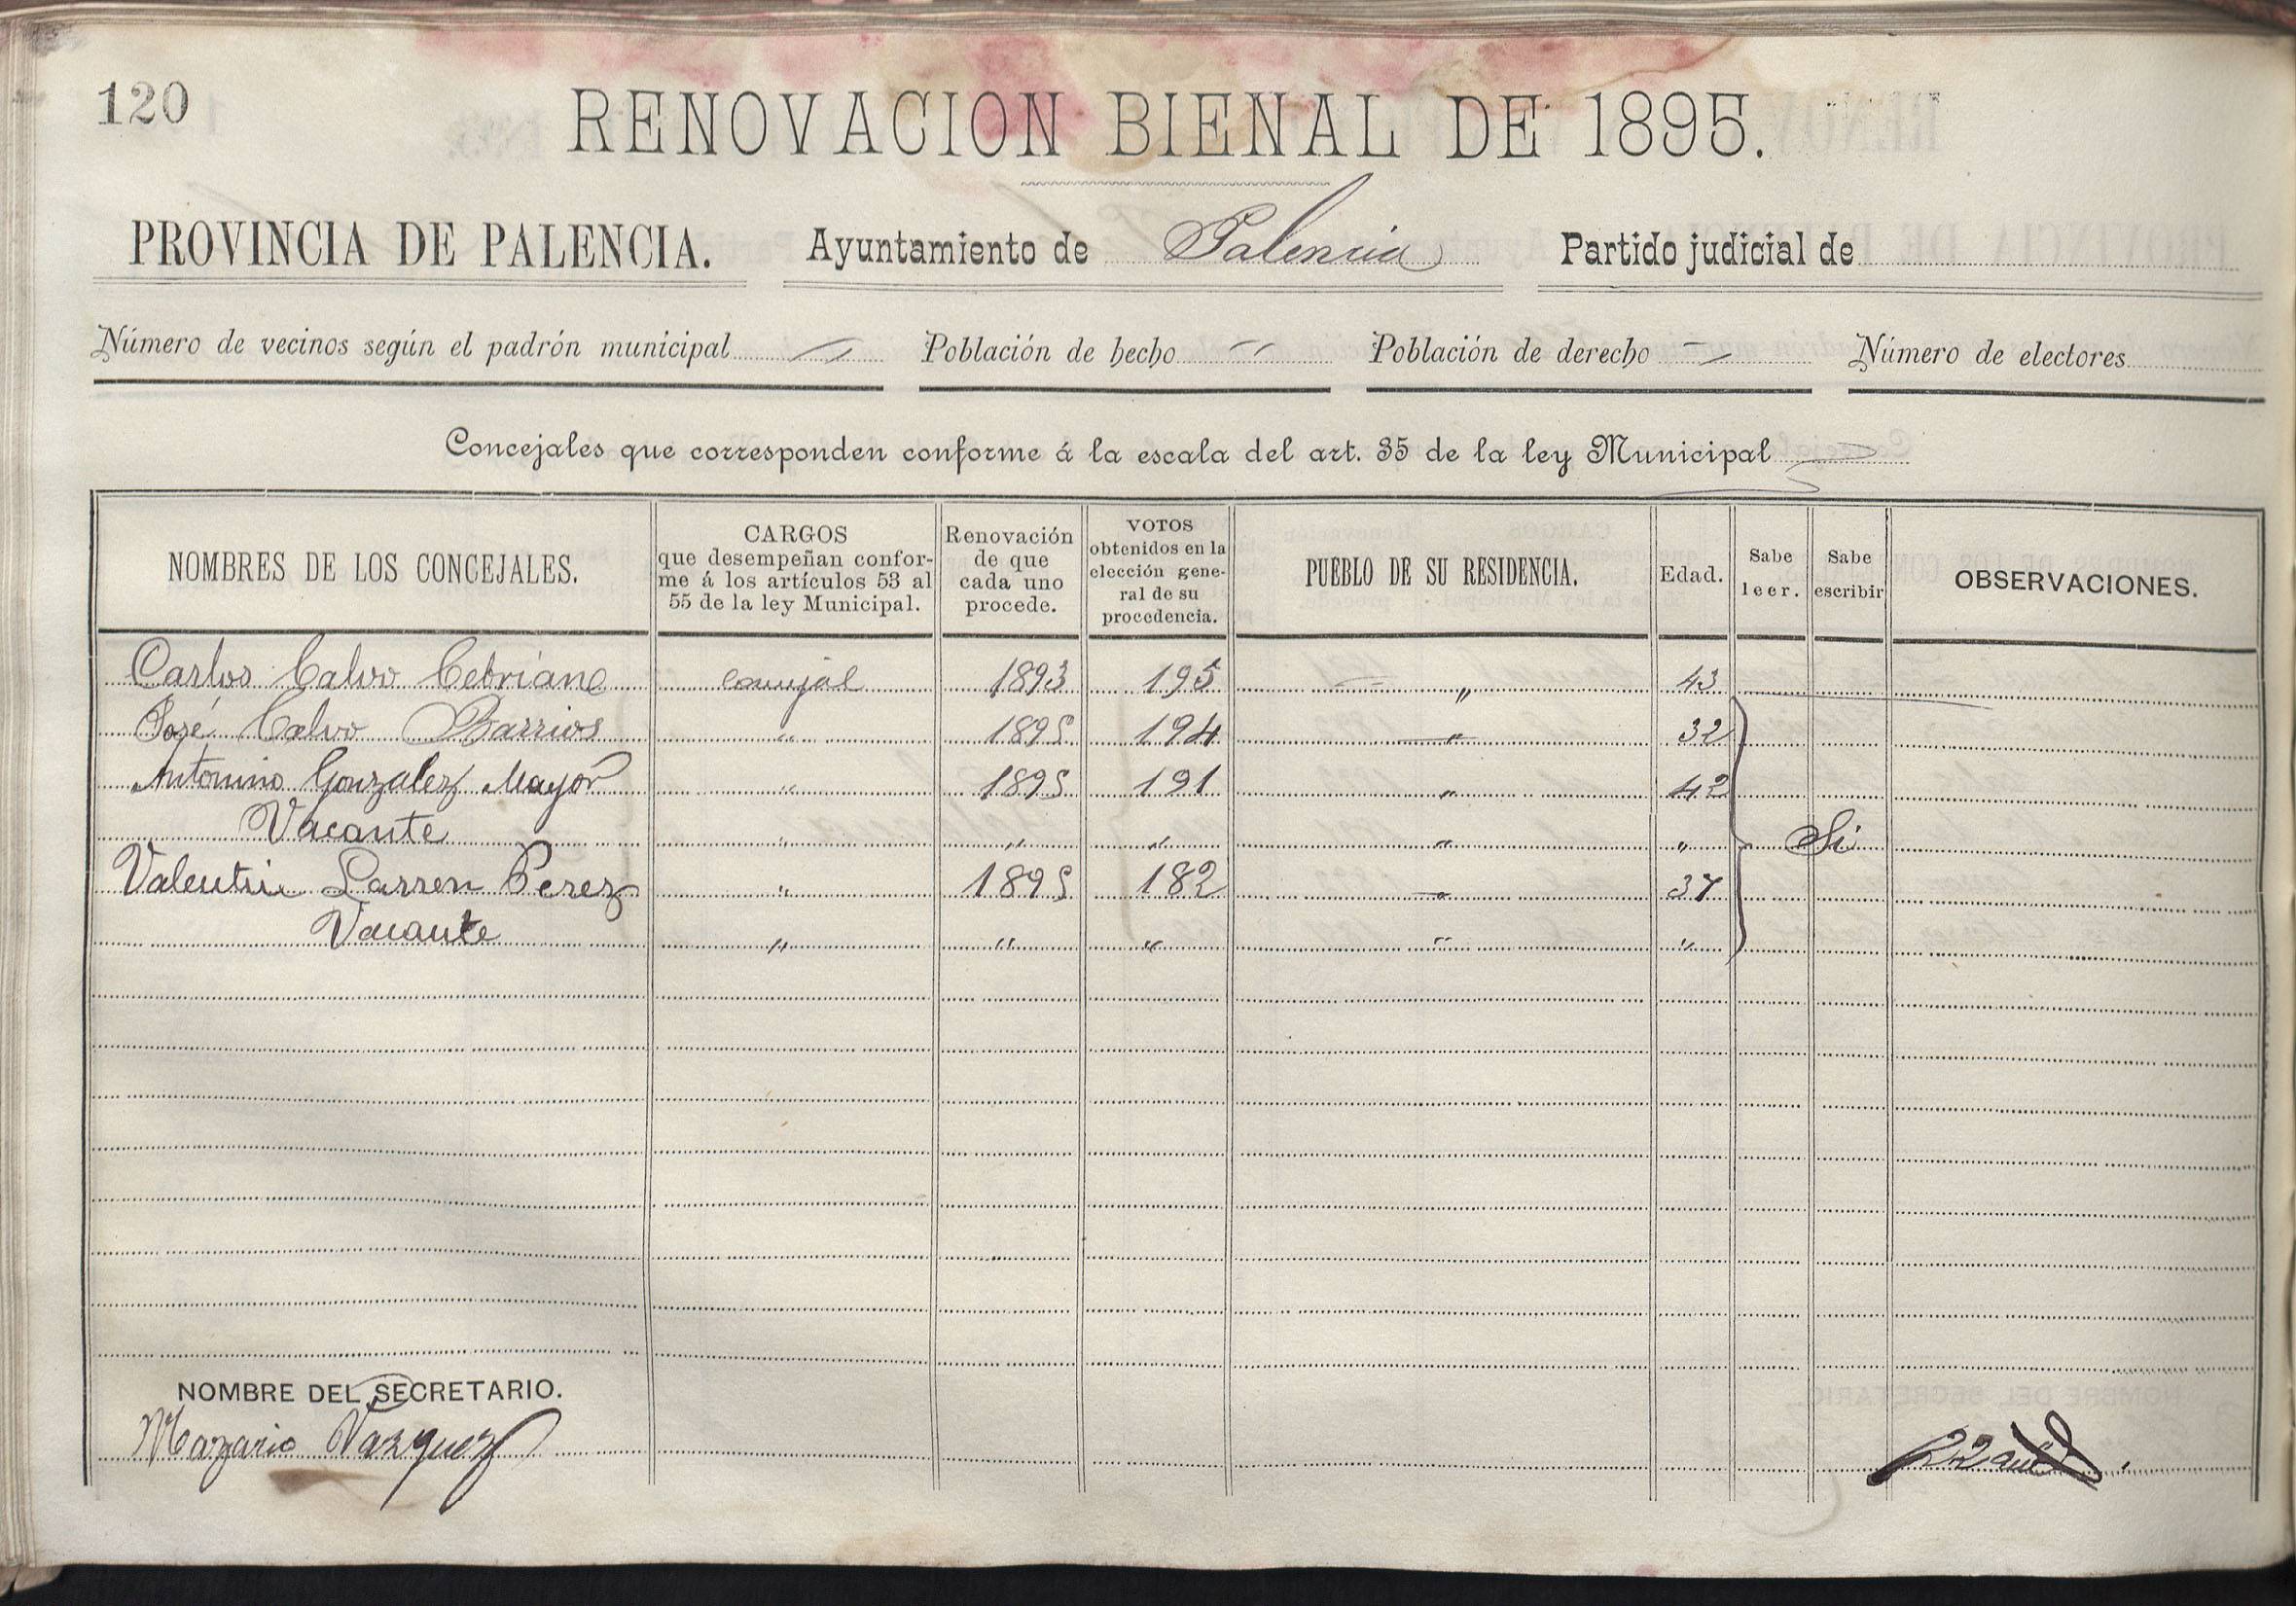 120
RENOVACION BIENAL DE 1895.
PROVINCIA DE PALENCIA. Ayuntamiento de Palencia Partido judicial de
Número de vecinos según el padrón municipal Población de hecho Población de derecho Número de electores
Concejales que corresponden conforme á la escala del art. 35 de la ley Municipal
NOMBRES DE LOS CONCEJALES.
CARGOS
que desempeñan confor-
me á los artículos 53 al
55 de la ley Municipal.
Renovación
de que
cada uno
procede.
VOTOS
obtenidos en la
elección gene-
ral de su
procedencia.
PUEBLO DE SU RESIDENCIA.
Edad.
Sabe
leer.
Sabe
escribir
OBSERVACIONES.
Carlos Calvo Cebriane concejal 1893 195 — " 43
José Calvo Barrios " 1895 194 " 32
Antonino Gonzalez Mayor " 1895 191 " 42
Vacante " " " " " Si
Valentin Larren Perez " 1895 182 " 37
Vacante " " " " "
NOMBRE DEL SECRETARIO.
Mazario Vazquez